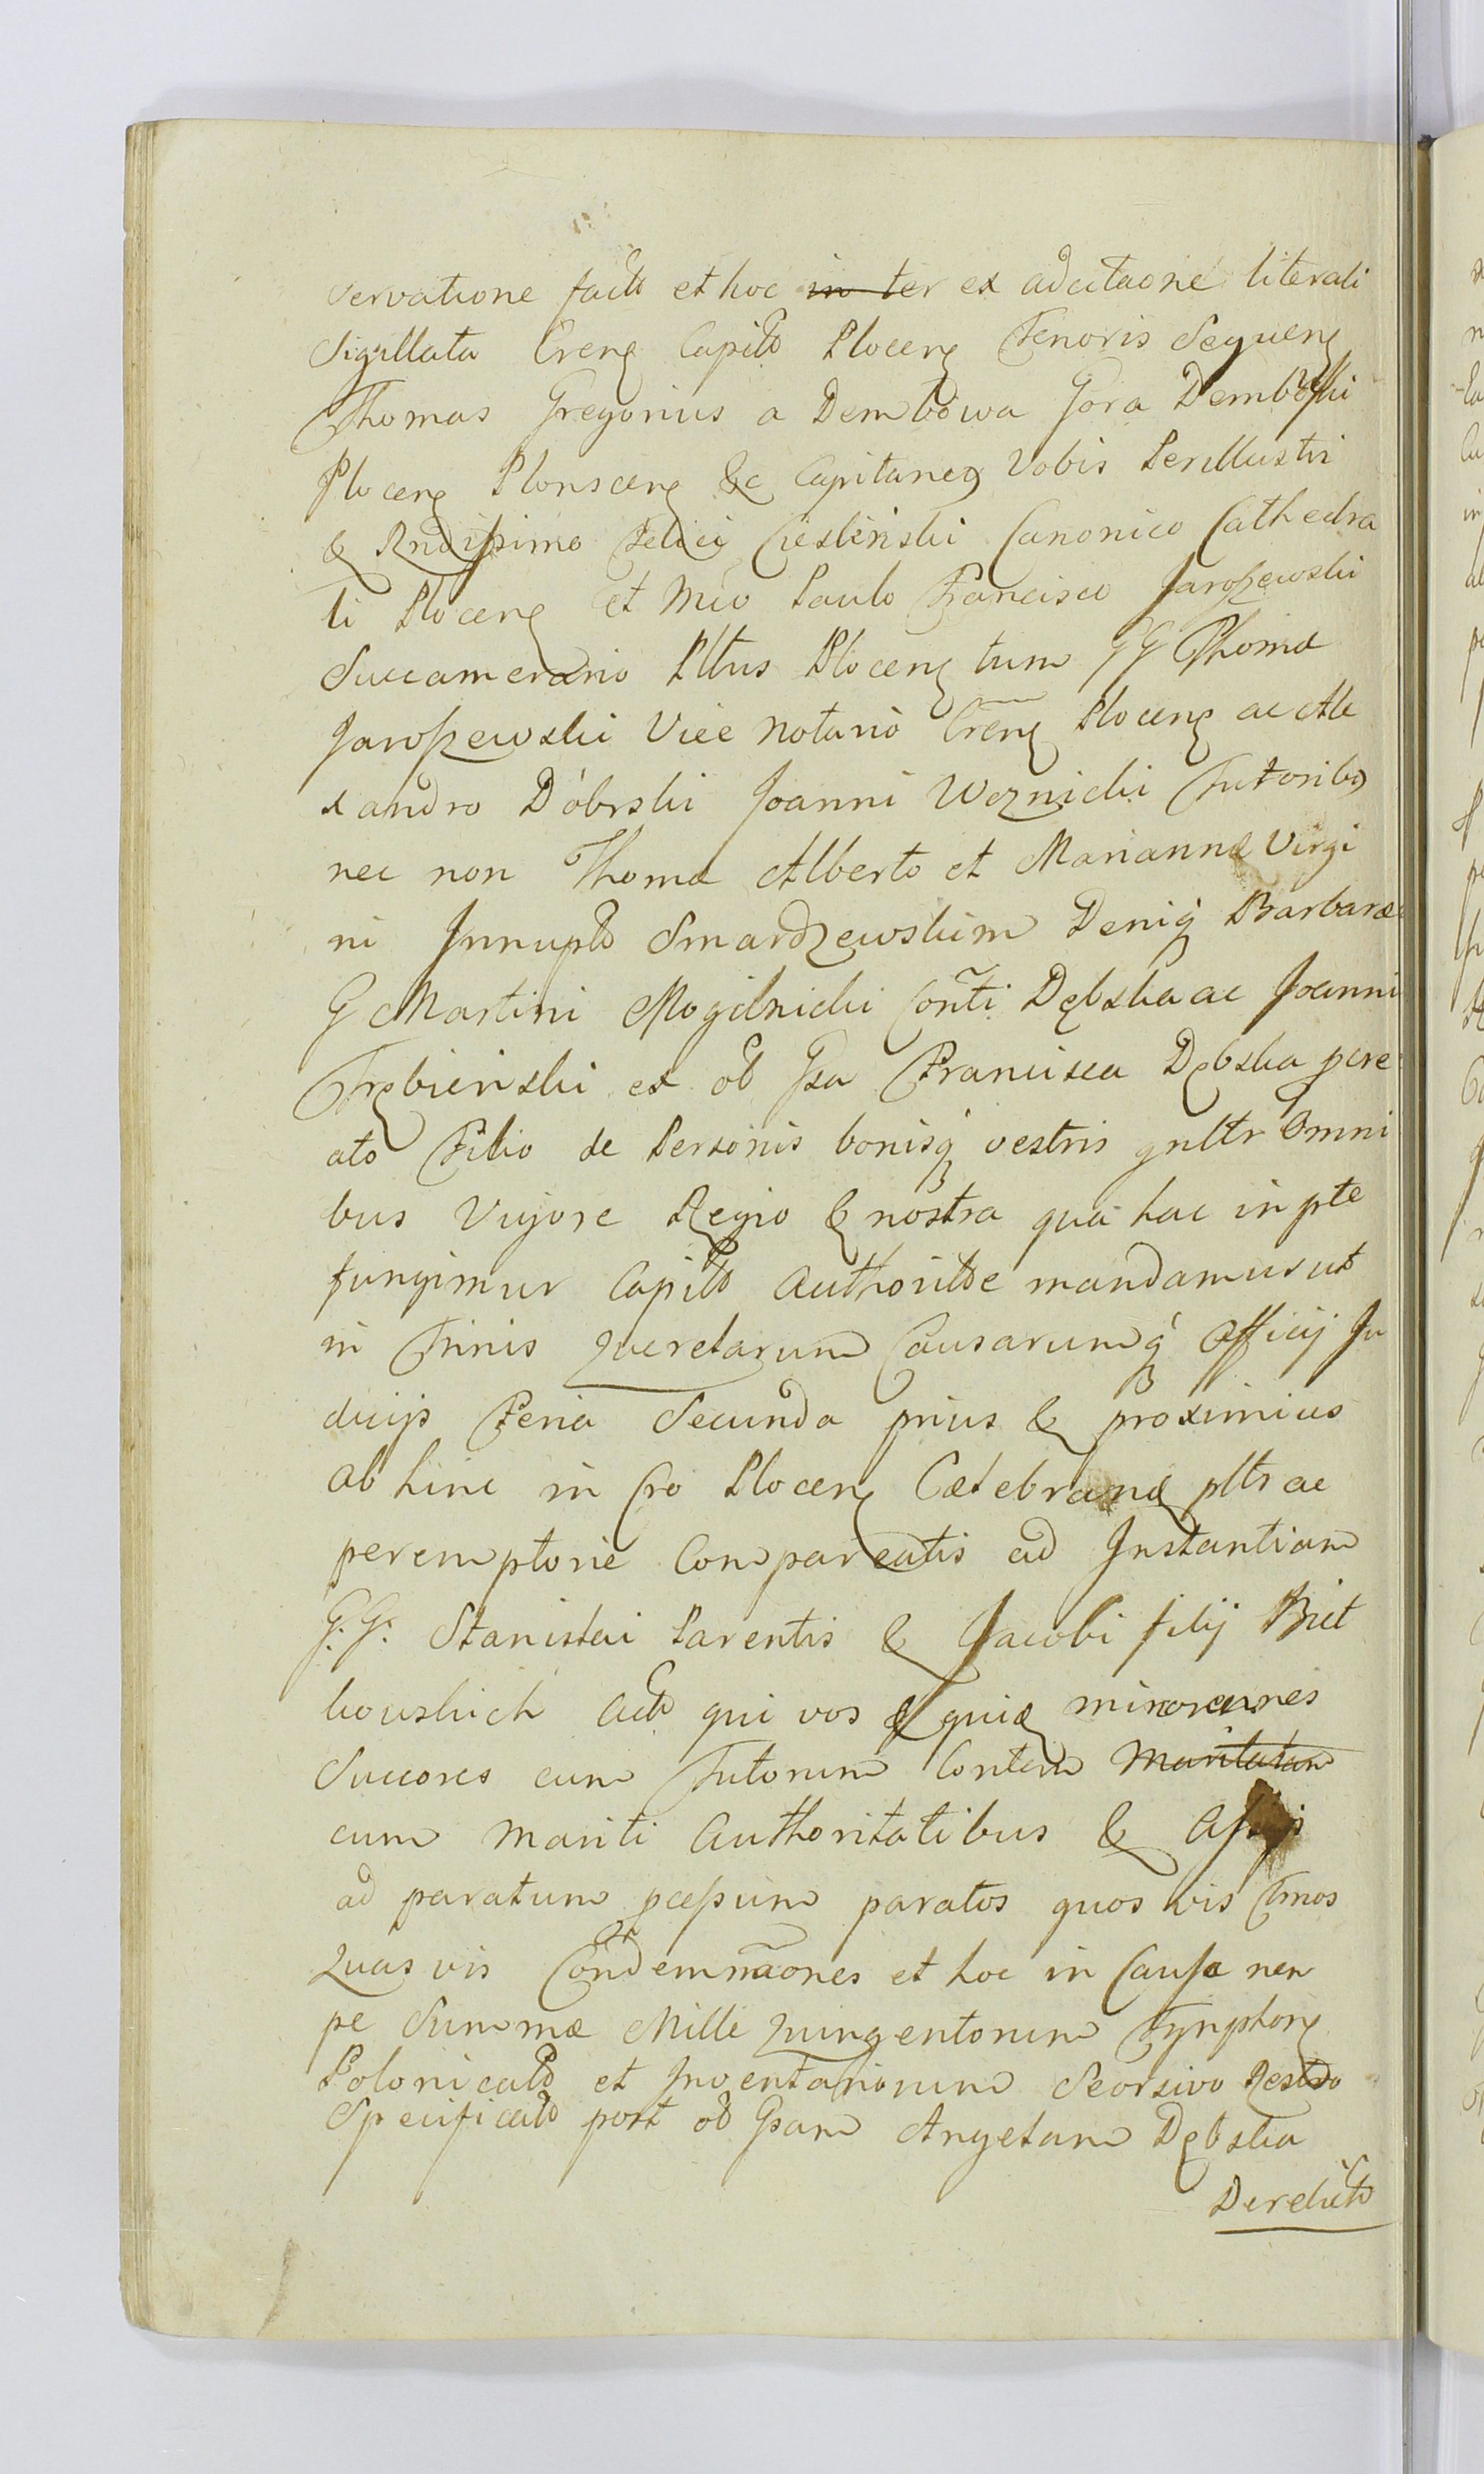 servatione facta et hoc in ter ex adcitaone literali
Sigillata Crens Capitli Plocens Tenoris Sequens
Thomas Gregorius a Dembowa Gora Dembowski
Plocens Plonscens &c Capitaneus Vobis Perillustri
& Rndissimo Felici Cieslinski Canonico Cathedra
li Plocens et Mco Paulo Francisco Jaroszewski
Succamerario Pltus Plocens tum GG Thomæ
Jaroszewski Vice Notario Crens Plocens ac Ale
xandro Dobrski Joanni Woznicki Tutoribus
nec non Thomæ Alberto et Mariannæ Virgi
ni Innuptæ Smardzewskim Deniq Barbaræ
G Martini Mogilnicki Conti Dębska ac Joanni
Trębienski ex ol Gsa Francisca Dębska pcre
ato Filio de Personis bonisq vestris gnltr Omni
bus Vigore Regio & nostra qua hac in pte
fungimur Capitli Authoritte mandamus ut
in Trinis Querelarum Causarumq Officij Ju
dicijs Feria Secunda prius & proximius
ab hinc in Cro Plocens Celebranæ pltr ac
peremptorie Compareatis ad Instantiam
G: G: Stanislai Parentis & Jacobi filij Biet
kowskich Act qui vos & quidę minorennes
Succores cum Tutorum Contem Maritatam
cum mariti Authoritatibus &
ad paratum pcessum paratos quos vis Tmos
Quas vis Condemnaones et hoc in Causa nem
pe Summæ Mille Quingentorum Tynphons
Polonicalt et Inventariorum Seorsivo Restro
Specificat post ol Gsam Angelam Dębska
Derelict